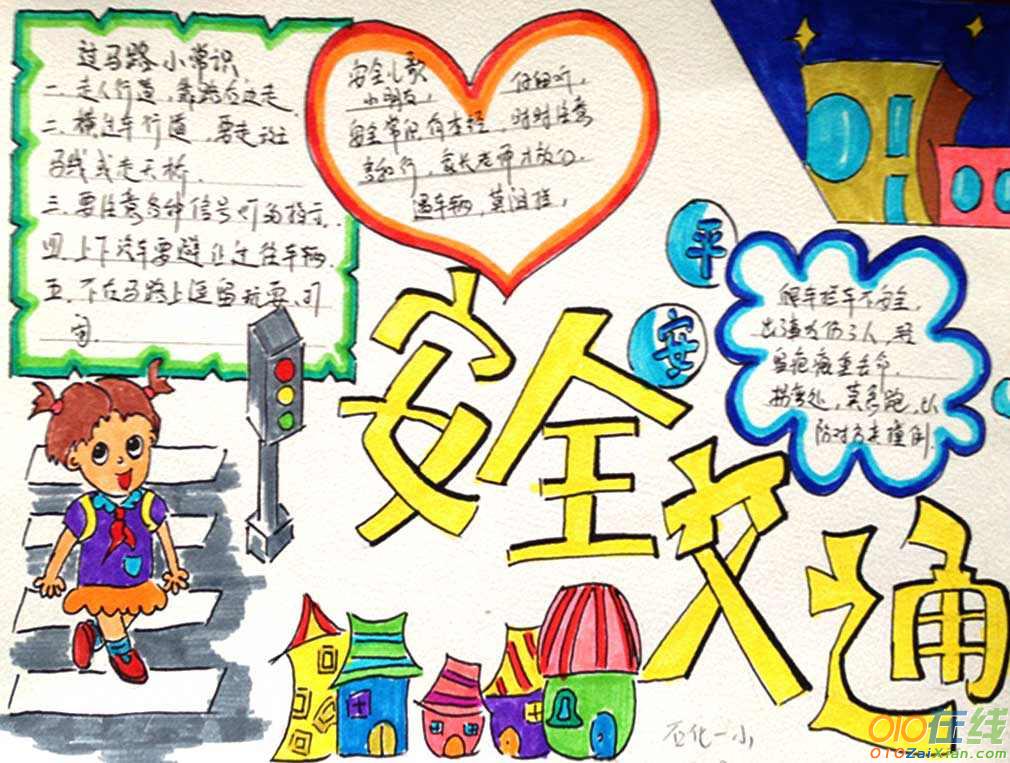 过马路小常识
一.走人行道,靠路右边走
二.横过车行道,要走斑
马线或走天桥.
三.要注意各种信号灯的指示.
四.上下汽车要避让过往车辆.
五.不在马路上逗留玩耍、
安全儿歌
小朋友,仔细听,
安全常识有本经,时时注意
家长老师才放心.
遇车辆,莫阻挡,
平
安
安全交通
爬车拦车不安全,
留疤痕重丢命.
拐弯处,莫急跑,以
防对方来撞倒.
石化一小
010在线
010ZaiXian.com